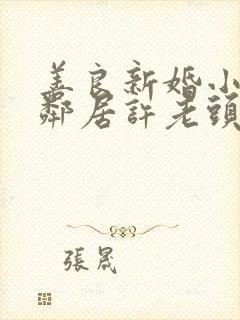 美良新婚小
鄰居許老頭
張晟